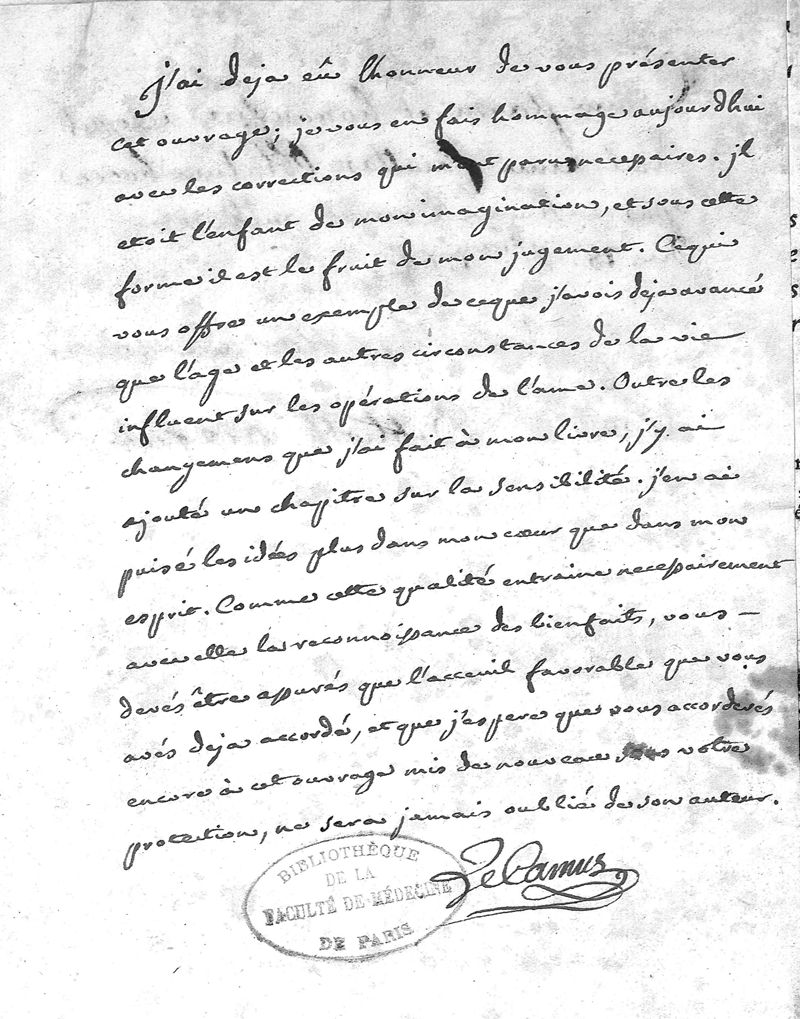 j'ai deja eû l'honneur de vous présenter
cet ouvrage; je vous en fais hommage aujourdhui
avec les corrections qui m'ont paru necessaires. jl
etoit l'enfant de mon imagination, et sous cette
forme il est le fruit de mon jugement. Ce qui
vous offre un exemple de ce que j'avois deja avancé
que l'age et les autres circonstances de la vie
influent sur les opérations de l'ame. Outre les
changemens que j'ai fait à mon livre, j'y ai
ajouté un chapitre sur la sensibilité. j'en ai
puisé les idées plus dans mon cœur que dans mon
esprit. Comme cette qualité entraine necessairement
avec elle la reconnoissance des bienfaits, vous –
devés être assurés que l'acceuil favorable que vous
avés deja accordé, et que j'espere que vous accorderés
encore à cet ouvrage mis de nouveau sous votre
protection, ne sera jamais oublié de son auteur.
Le Camus
BIBLIOTHÈQUE
DE LA
FACULTÉ DE MÉDECINE
DE PARIS